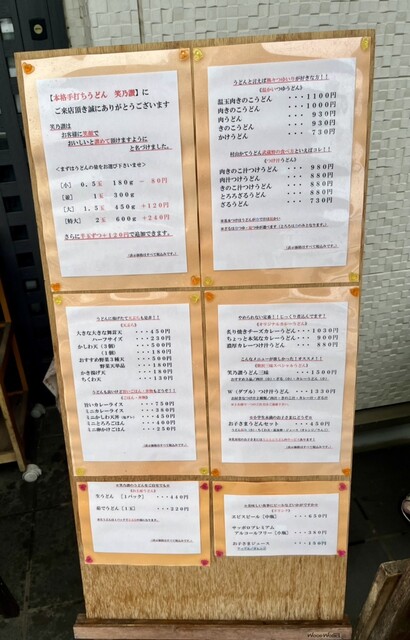 【本格手打ちうどん 笑乃讃】に
ご来店頂き誠にありがとうございます
笑乃讃は
お客様に笑顔で
おいしいと讃めて頂けますように
と名づけました。
<まずはうどんの量をお選び下さいませ>
【小】 0.5玉 180g － 80円
【並】 1玉 300g
【大】 1.5玉 450g ＋120円
【特大】 2玉 600g ＋240円
さらに半玉ずつ＋120円で追加できます。
(表示価格はすべて税込みです。)
(温かいつゆうどん)
温玉肉きのこうどん ・・・1100円
肉きのこうどん ・・・1000円
肉うどん ・・・ 930円
きのこうどん ・・・ 930円
かけうどん ・・・ 730円
(つけ汁うどん)
肉きのこ汁つけうどん ・・・ 980円
肉汁つけうどん ・・・ 880円
きのこ汁つけうどん ・・・ 880円
とろろざるうどん ・・・ 880円
ざるうどん ・・・ 730円
(表示価格はすべて税込みです。)
うどんに揚げたて天ぷらも是非！！
大きな大きな舞茸天 ・・・450円
ハーフサイズ ・・・230円
かしわ天（3個） ・・・500円
（1個） ・・・180円
おすすめ野菜3種天 ・・・500円
野菜天単品 ・・・180円
かき揚げ天 ・・・180円
ちくわ天 ・・・130円
旨いカレーライス ・・・750円
ミニカレーライス ・・・380円
ミニかしわ天丼 ・・・450円
ミニとろろごはん ・・・400円
ミニ卵かけごはん ・・・250円
やめられない定番！！じっくり煮込んでます！
炙り焼きチーズカレーうどん ・・・1030円
ちょっと本気なカレーうどん ・・・ 900円
濃厚カレーつけ汁うどん ・・・ 880円
こんなメニューが欲しかった！オススメ！！
笑乃讃うどん三昧 ・・・1500円
W（ダブル）つけ汁うどん ・・・1330円
お子さまうどんセット ・・・ 450円
(表示価格はすべて税込みです。)
生うどん 【1パック】 ・・・440円
茹でうどん【1玉】 ・・・220円
(表示価格はすべて税込みです。)
エビスビール【小瓶】 ・・・650円
サッポロプレミアム
アルコールフリー【小瓶】 ・・・380円
お子さまジュース ・・・150円